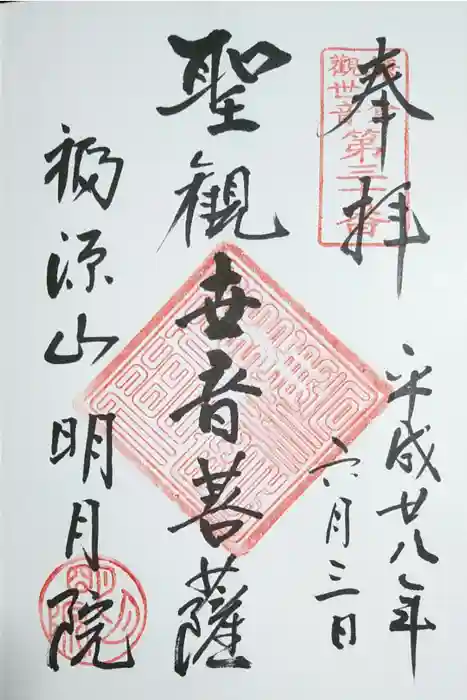 奉拝
觀世音第三十番
平成廿八年
六月三日
聖觀世音菩薩
福源山明月院